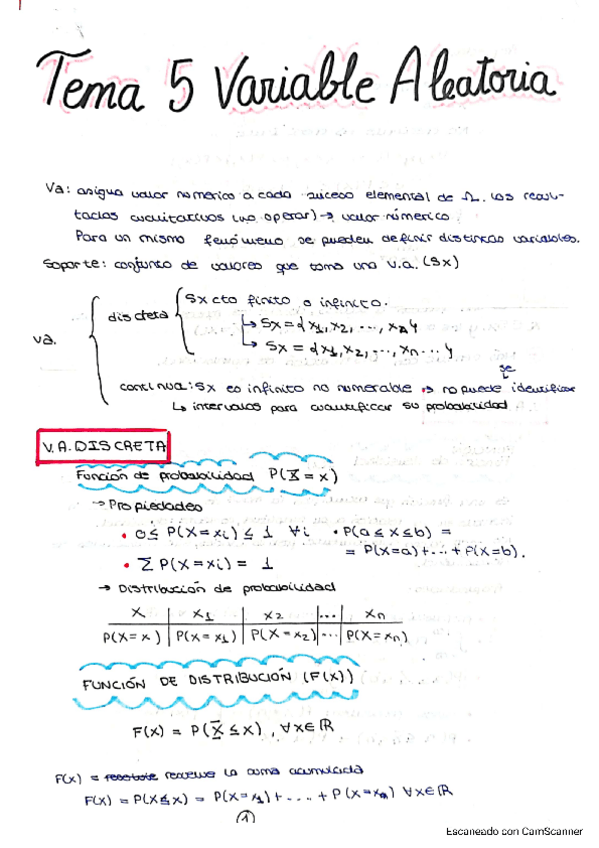 Tema 5 Variable Aleatoria
Va: asigna valor numerico a cada suceso elemental de Ω. Los resul-
tados cualitativos (no operar) → valor númerico.
Para un mismo fenómeno se pueden definir distintas variables.
Soporte: conjunto de valores que toma una v.a. (Sx)
va.
discreta
Sx cto finito o infinito.
↳ Sx = {x1, x2, ..., xn}
↳ Sx = {x1, x2, ..., xn ... }
se
continua: Sx es infinito no numerable no puede identificar
↳ intervalos para cuantificar su probabilidad
V.A. DISCRETA
Función de probabilidad P(X = x)
→ Propiedades
• 0 ≤ P(X = xi) ≤ 1 ∀i • P(a ≤ x ≤ b) =
= P(X=a) + ... + P(X=b).
• Σ P(X = xi) = 1
→ Distribución de probabilidad
X x1 x2 ... xn
P(X = x) P(X = x1) P(X = x2) ... P(X = xn)
FUNCIÓN DE DISTRIBUCIÓN (F(x))
F(x) = P(X ≤ x), ∀x∈ℝ
F(x) = resuelve la suma acumulada
F(x) = P(X≤x) = P(X=x1) + .... + P(X=xn) ∀x∈ℝ
1
Escaneado con CamScanner